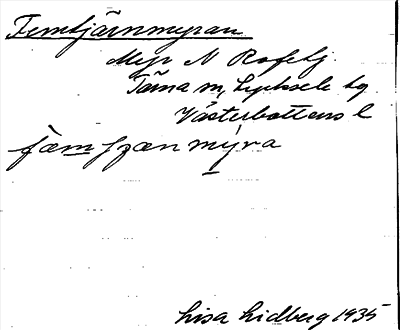 Femtjärnmyran
Myr N Rofshj.
Tärna sn, Lycksele tg
Västerbottens l
fæmſʒænmy̍ra
Lisa Lidberg 1935